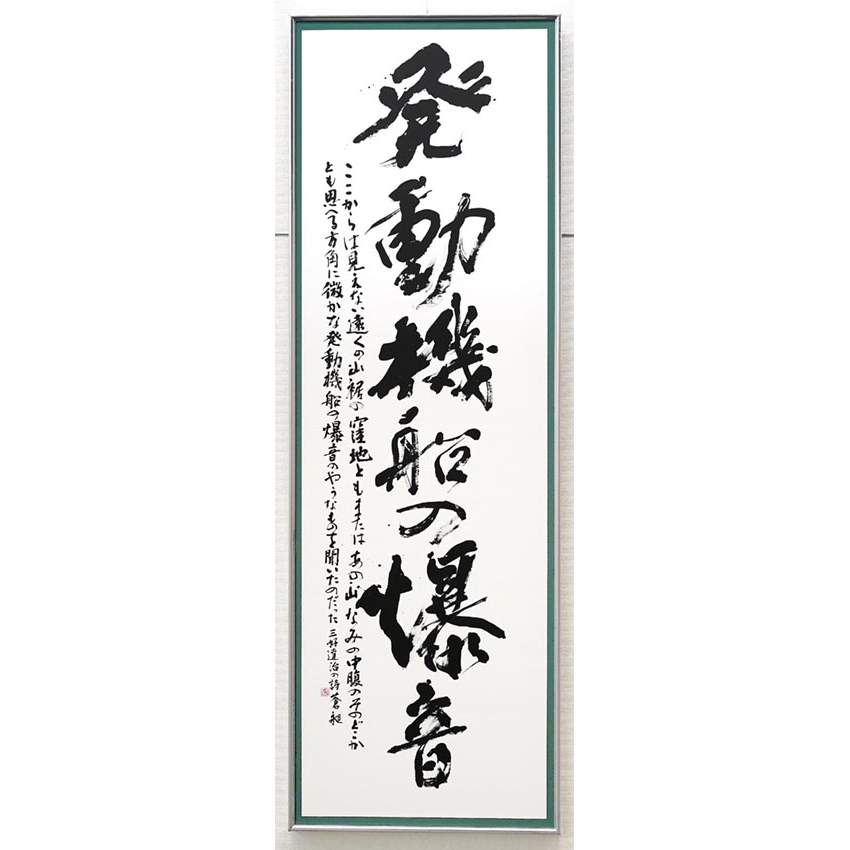 発動機船の爆音
ここからは見えない遠くの山裾の窪地ともまたはあの山なみの中腹のそのどこか
とも思へる方角に微かな発動機船の爆音のやうなものを聞いたのだった 三好達治の詩 蒼艇